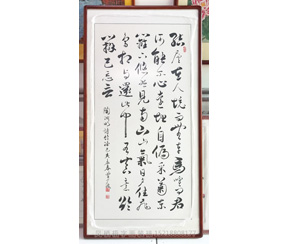 結廬在人境而無車馬喧問君
何能爾心遠地自偏采菊東
籬下悠然見南山山氣日夕佳飛
鳥相與還此中有真意欲
辨已忘言
陶淵明詩